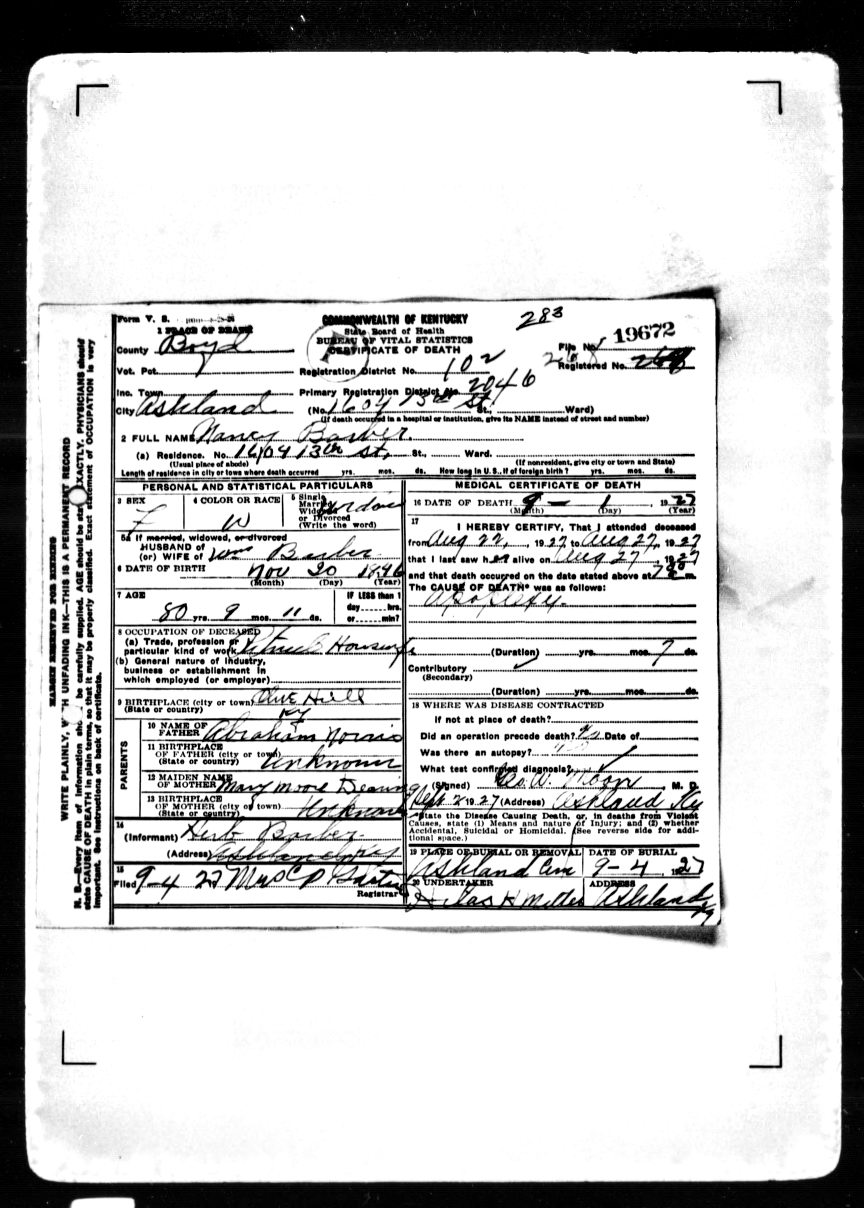 MARGIN RESERVED FOR BINDING
WRITE PLAINLY, WITH UNFADING INK—THIS IS A PERMANENT RECORD
N. B.—Every item of information should be carefully supplied. AGE should be stated EXACTLY. PHYSICIANS should
state CAUSE OF DEATH in plain terms, so that it may be properly classified. Exact statement of OCCUPATION is very
important. See instructions on back of certificate.
Form V. S.
COMMONWEALTH OF KENTUCKY
283
1 PLACE OF DEATH
State Board of Health
BUREAU OF VITAL STATISTICS
CERTIFICATE OF DEATH
File No. 19672
County Boyd
Registered No. 268
Vot. Pct.
Registration District No. 102
Inc. Town
Primary Registration District No. 2046
City Ashland
(No. 1604 13th St. St., Ward)
(If death occurred in a hospital or institution, give its NAME instead of street and number)
2 FULL NAME Nancy Barber.
(a) Residence. No. 1604 13th St. St., Ward.
(Usual place of abode) (If nonresident, give city or town and State)
Length of residence in city or town where death occurred yrs. mos. ds. How long in U. S., if of foreign birth? yrs. mos. ds.
PERSONAL AND STATISTICAL PARTICULARS
3 SEX F
4 COLOR OR RACE W
5 Single
Married
Widowed
or Divorced
(Write the word)
5a If married, widowed, or divorced
HUSBAND of
(or) WIFE of Wm Barber
6 DATE OF BIRTH Nov 20 1846
(Month) (Day) (Year)
7 AGE
80 yrs. 9 mos. 11 ds.
IF LESS than 1
day......hrs.
or......min?
8 OCCUPATION OF DECEASED
(a) Trade, profession or
particular kind of work Housewife
(b) General nature of Industry,
business or establishment in
which employed (or employer)
9 BIRTHPLACE (city or town) Olive Hill
(State or country) Ky
PARENTS
10 NAME OF
FATHER Abraham Norris
11 BIRTHPLACE
OF FATHER (city or town) Unknown
(State or country)
12 MAIDEN NAME
OF MOTHER Mary Moore Dearing
13 BIRTHPLACE
OF MOTHER (city or town) Unknown
(State or country)
14
(Informant) Herb Barber
(Address) Ashland Ky
15
Filed 9-4 27 Mrs C P
Registrar
MEDICAL CERTIFICATE OF DEATH
16 DATE OF DEATH 9 - 1, 1927
(Month) (Day) (Year)
17
I HEREBY CERTIFY, That I attended deceased
from Aug 22, 1927 to Aug 27, 1927
that I last saw her alive on Aug 27, 1927
and that death occurred on the date stated above at m.
The CAUSE OF DEATH* was as follows:
Apoplexy.
(Duration) yrs. mos. 7 ds.
Contributory
(Secondary)
(Duration) yrs. mos. ds.
18 WHERE WAS DISEASE CONTRACTED
If not at place of death?
Did an operation precede death? No Date of
Was there an autopsy? no
What test confirmed diagnosis?
(Signed) Geo. W. Moon, M. D.
Sept 2 1927 (Address) Ashland Ky
*State the Disease Causing Death, or, in deaths from Violent
Causes, state (1) Means and nature of Injury; and (2) whether
Accidental, Suicidal or Homicidal. (See reverse side for addi-
tional space.)
19 PLACE OF BURIAL OR REMOVAL
Ashland Cem
DATE OF BURIAL
9-4 1927
20 UNDERTAKER
Miller
ADDRESS
Ashland, Ky